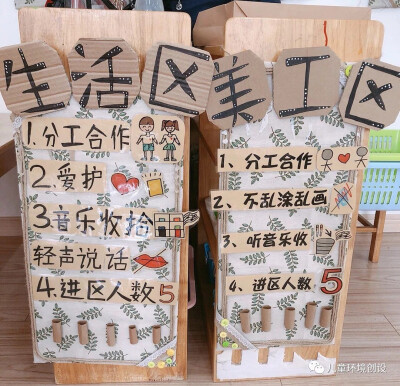 生活区
1.分工合作
2.爱护
3音乐收拾
轻声说话
4.进区人数5
美工区
1、分工合作
2、不乱涂乱画
3、听音乐收
4、进区人数5
儿童环境创设